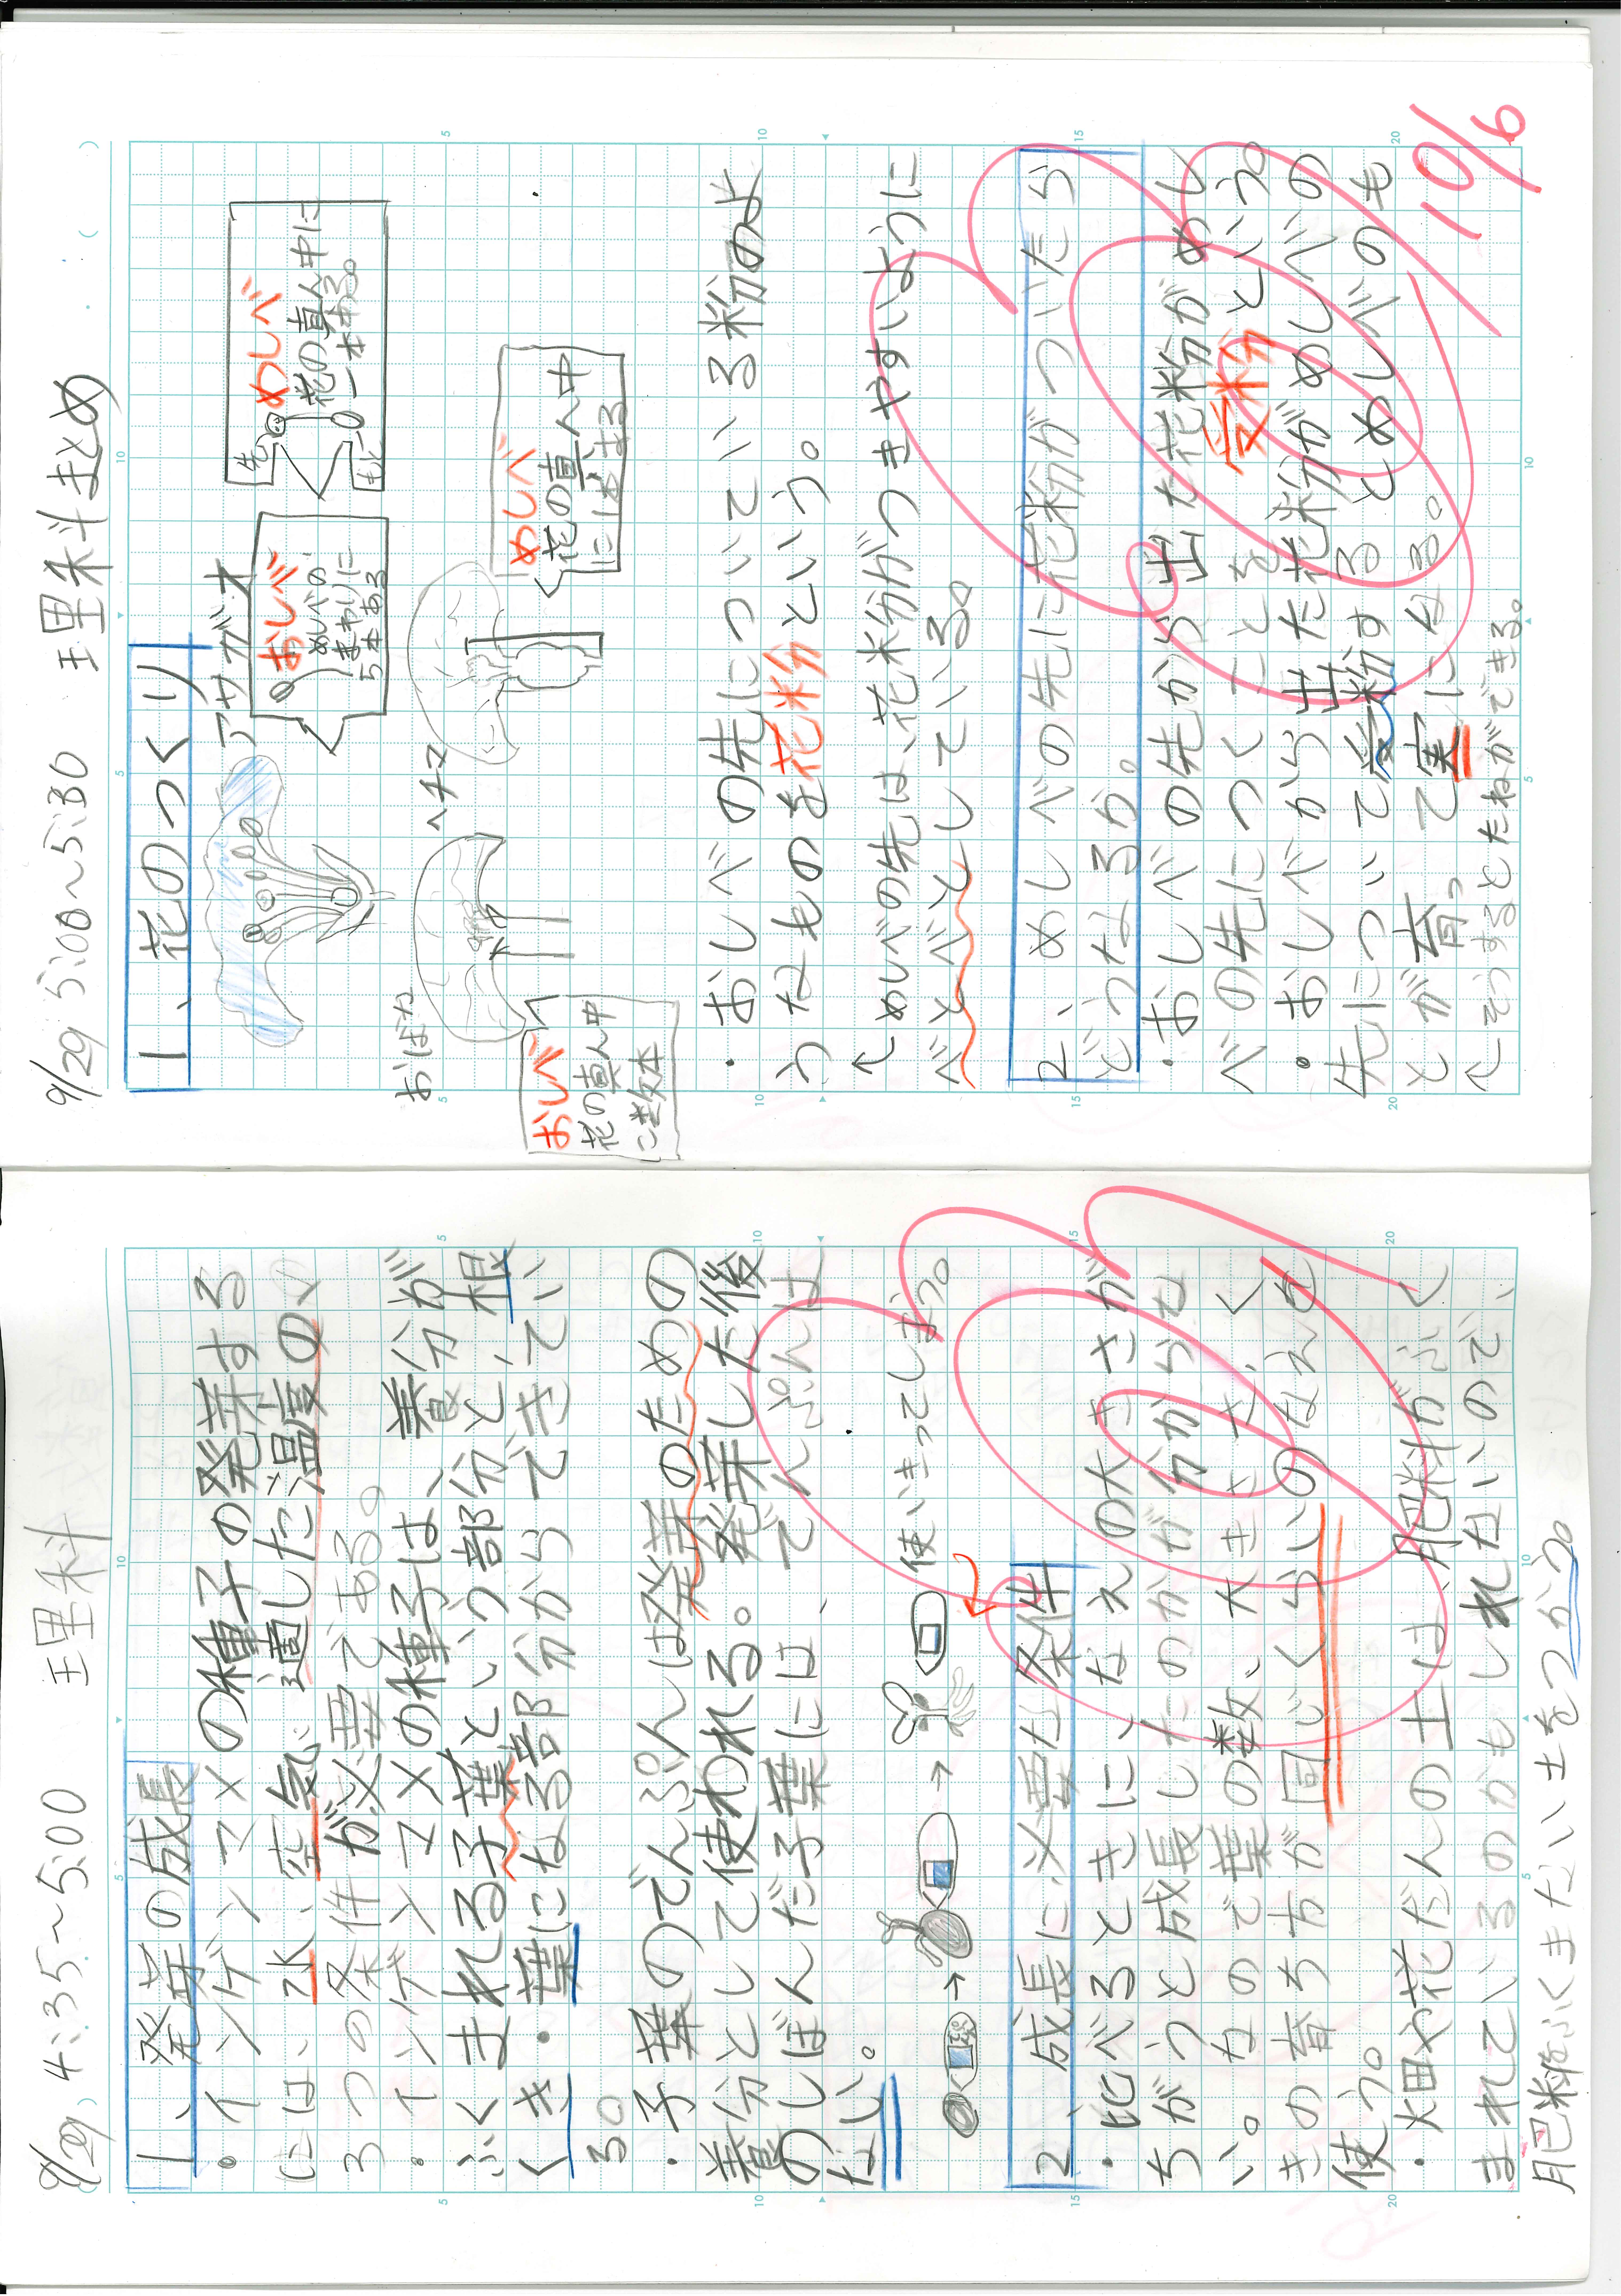 9/29, 4:35~5:00 理科
1、発芽の成長
・インゲンマメの種子の発芽する
には、水、空気、適した温度の
3つの条件が必要である。
・インゲンマメの種子は、養分が
ふくまれる子葉という部分と、根
・くき・葉になる部分からできてい
る。
・子葉のでんぷんは発芽のための
養分として使われる。発芽した後
のしぼんだ子葉には、でんぷんは
ない。
使いきってしまう。
2、成長に必要な条件
・比べるときに、なえの大きさが
ちがうと成長したのかが分からな
い。なので葉の数、大きさ、く
きの育ち方が同じくらいのなえを
使う。
・畑や花だんの土は、肥料がふく
まれているのかもしれないので、
肥料をふくまない土をつかう。
9/29 5:00~5:30 理科まとめ
1、花のつくり
アサガオ
おしべ
めしべの
まわりに
5本ある
先
もと
めしべ
花の真ん中に
一本ある。
おばな
ヘチマ
おしべ
花の真ん中
に数本
めしべ
花の真ん中
にある
・おしべの先についている粉のよ
うなものを花粉という。
↑めしべの先は、花粉がつきやすいように
べとべととしている。
2、めしべの先に花粉がついたら
どうなるか。
・おしべの先から出た花粉がめし
べの先につくことを受粉という。
・おしべから出た花粉がめしべの
先について受粉するとめしべのも
とが育って実になる。
↑そうするとたねができる。
10/6